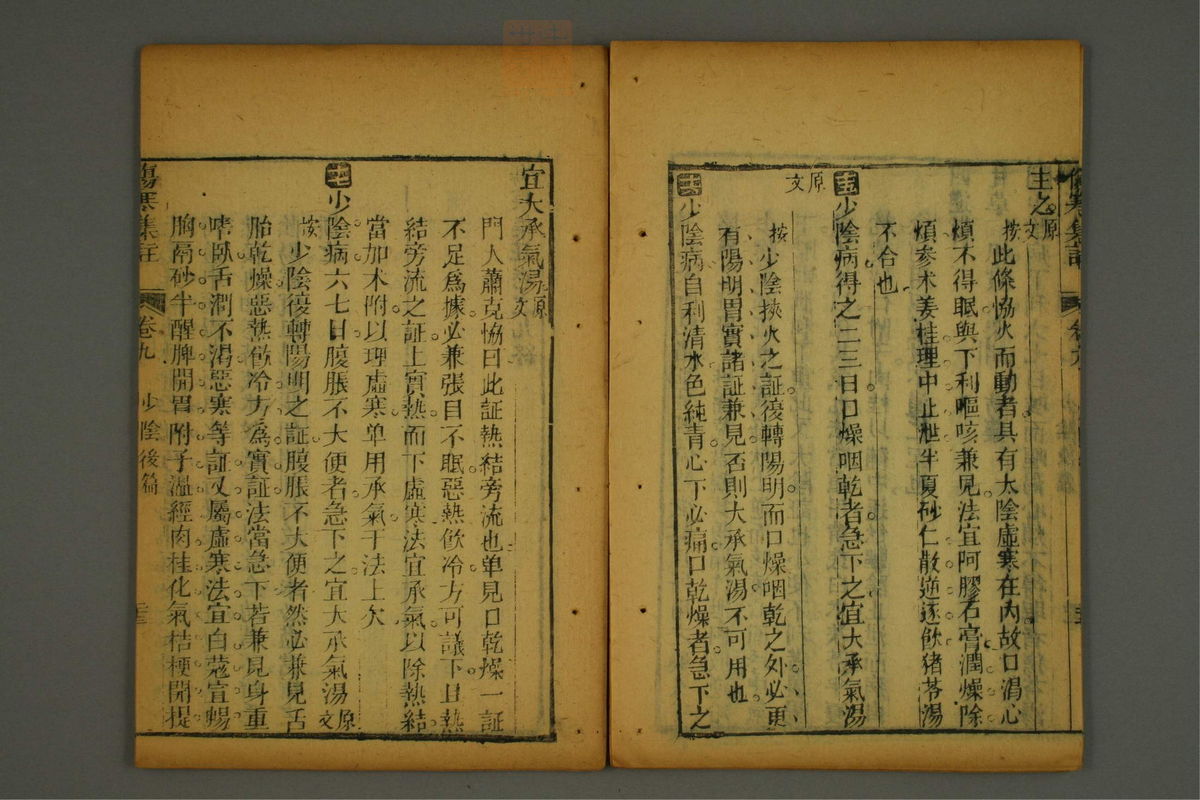 主之原文
按此條協火而動者具有太陰虛寒在內故口渴心
煩不得眠與下利嘔咳兼見法宜阿膠石膏潤燥除
煩參朮姜桂理中止泄半夏砂仁散逆逐飲猪苓湯
不合也
少陰病得之二三日口燥咽乾者急下之宜大承氣湯
原文
按少陰挾火之証復轉陽明而口燥咽乾之外必更
有陽明胃實諸証兼見否則大承氣湯不可用也
少陰病自利清水色純青心下必痛口乾燥者急下之
宜大承氣湯原文
門人蕭克協曰此証熱結旁流也单見口乾燥一証
不足爲據必兼張目不眠惡熱飲冷方可議下且熱
結旁流之証上實熱而下虛寒法宜承氣以除熱結
當加朮附以理虛寒单用承氣于法上欠
少陰病六七日腹脹不大便者急下之宜大承氣湯原文
按少陰復轉陽明之証腹脹不大便者然必兼見舌
胎乾燥惡熱飲冷方爲實証法當急下若兼見身重
嗜臥舌潤不渴惡寒等証又屬虛寒法宜白蔻宣暢
胸膈砂半醒脾開胃附子溫經肉桂化氣桔梗開提
傷寒集註 卷九 少陰後篇